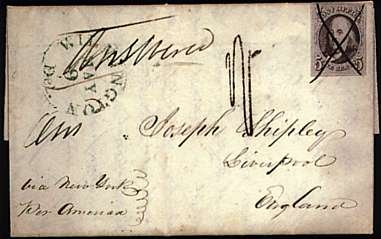 Answered
WILMINGTON
MAY
Del.
POST OFFICE
5 5
Joseph Shipley
Liverpool
England
via New York
Per America